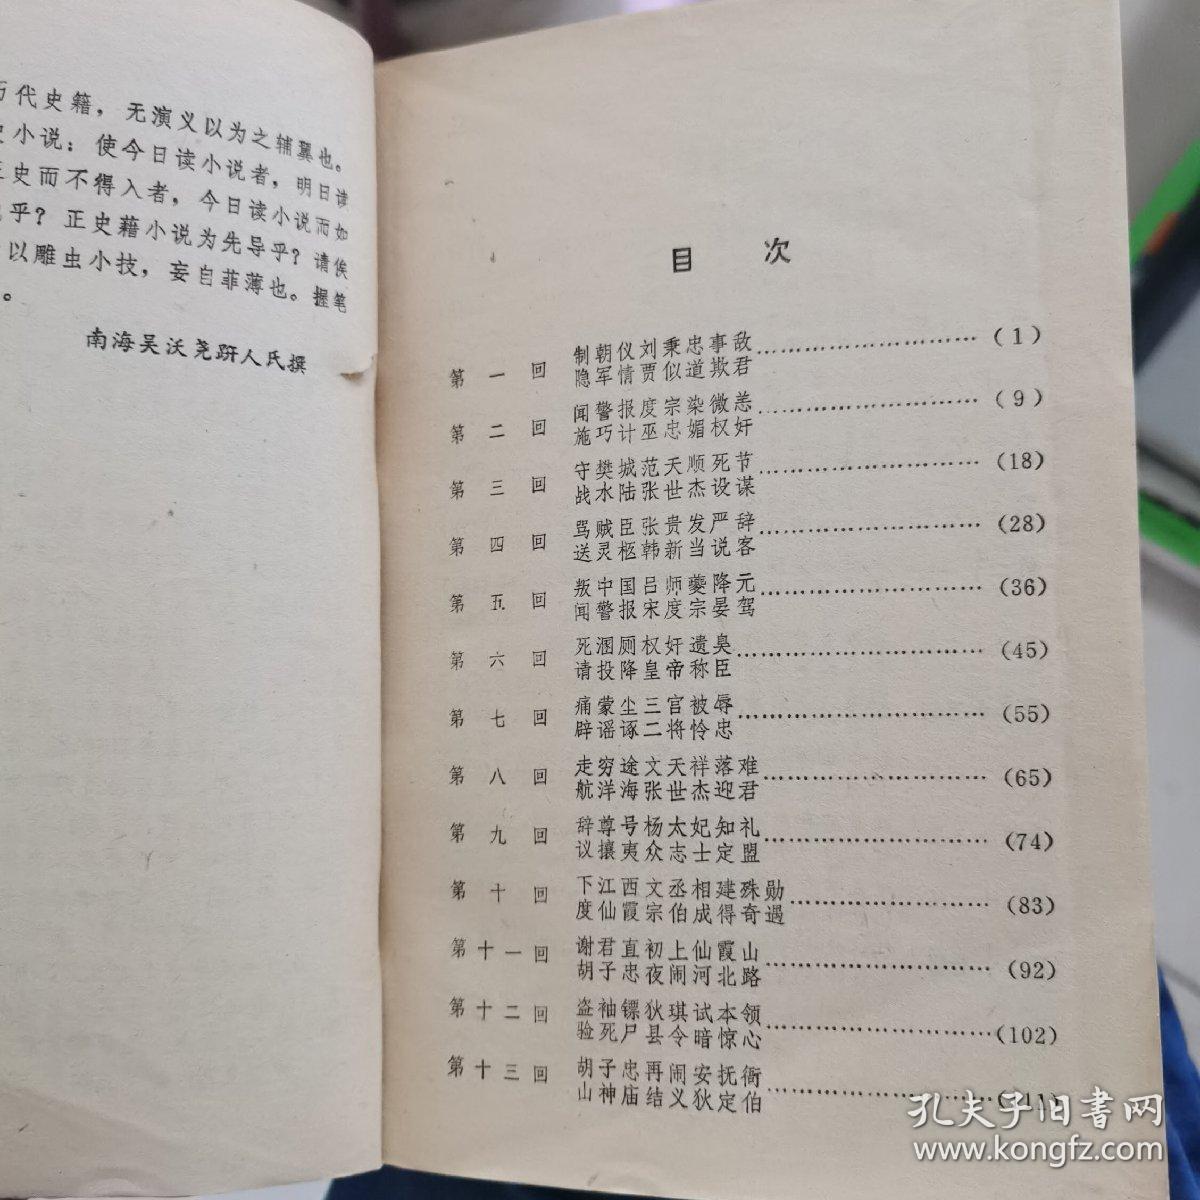 历代史籍，无演义以为之辅翼也。
史小说；使今日读小说者，明日读
正史而不得入者，今日读小说而如
乎？正史藉小说为先导乎？请俟
以雕虫小技，妄自菲薄也。握笔
。
南海吴沃尧趼人氏撰
目 次
第一回 制朝仪刘秉忠事敌
隐军情贾似道欺君 (1)
第二回 闻警报度宗染微恙
施巧计巫忠媚权奸 (9)
第三回 守樊城范天顺死节
战水陆张世杰设谋 (18)
第四回 骂贼臣张贵发严辞
送灵柩韩新当说客 (28)
第五回 叛中国吕师夔降元
闻警报宋度宗晏驾 (36)
第六回 死溷厕权奸遗臭
请投降皇帝称臣 (45)
第七回 痛蒙尘三宫被辱
辟谣诼二将怜忠 (55)
第八回 走穷途文天祥落难
航洋海张世杰迎君 (65)
第九回 辞尊号杨太妃知礼
议攘夷众志士定盟 (74)
第十回 下江西文丞相建殊勋
度仙霞宗伯成得奇遇 (83)
第十一回 谢君直初上仙霞山
胡子忠夜闹河北路 (92)
第十二回 盗袖镖狄琪试本领
验死尸县令暗惊心 (102)
第十三回 胡子忠再闹安抚衙
山神庙结义狄定伯
孔夫子旧书网
www.kongfz.com